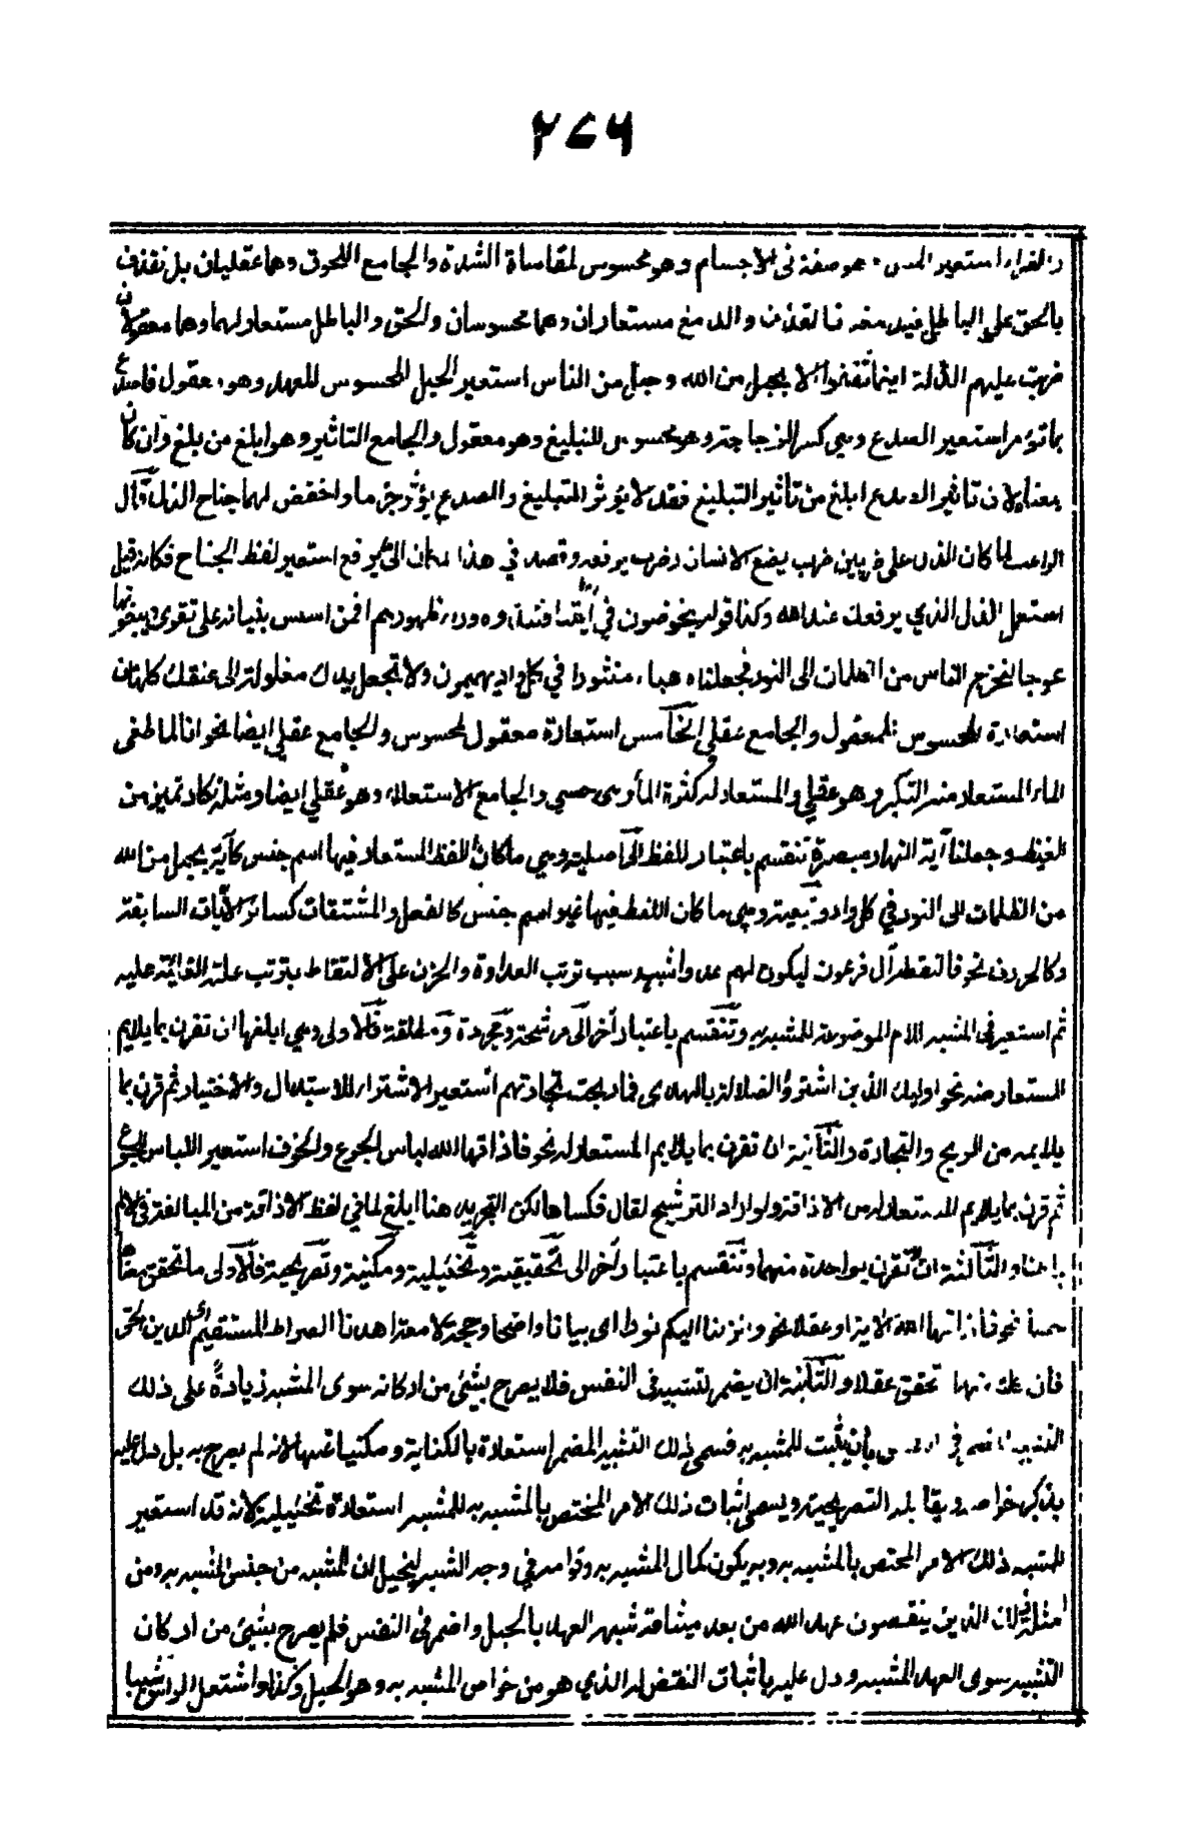 ٢٧٦
والضراء استعير المس وهو صفة فى الاجسام وهو محسوس لمقاساة الشدة والجامع اللحوق وهما عقليان بل نقذف
بالحق على الباطل فيدمغه فالقذف والدمغ مستعاران وهما محسوسان والحق والباطل مستعار لهما وهما معقولان
ضربت عليهم الذلة اينما ثقفوا الا بحبل من الله وحبل من الناس استعير الحبل المحسوس للعهد وهو معقول فاصدع
بما تؤمر استعير الصدع وهى كسر الزجاجة وهو محسوس للتبليغ وهو معقول والجامع التاثير وهو ابلغ من بلغ وان كان
بمعناه لان تاثير الصدع ابلغ من تاثير التبليغ فقد لا يؤثر التبليغ والصدع يؤثر جزما واخفض لهما جناح الذل قال
الراغب لما كان الذل على ضربين ضرب يضع الانسان وضرب يرفعه وقصد في هذا المكان الى ما يرفع استعير لفظ الجناح فكانه قيل
استعمل الذل الذي يرفعك عند الله وكذا قوله يخوضون في آيتنا فنبذوه وراء ظهورهم افمن اسس بنيانه على تقوى ويبغونها
عوجا لتخرج الناس من الظلمات الى النور فجعلناه هباء منثورا في كل واد يهيمون ولا تجعل يدك مغلولة الى عنقك كلها من
استعارة المحسوس للمعقول والجامع عقلي الخامس استعارة معقول لمحسوس والجامع عقلي ايضا نحو انا لما طغى
الماء المستعار منه التكبر وهو عقلي والمستعار له كثرة الماء وهى حسي والجامع الاستعلاء وهو عقلي ايضا ومثله تكاد تميز من
الغيظ وجعلنا آية النهار مبصرة وتنقسم باعتبار اللفظ الى اصلية وهي ما كان اللفظ المستعار فيها اسم جنس كآية بحبل من الله
من الظلمات الى النور في كل واد وتبعية وهى ما كان اللفظ فيها غير اسم جنس كالفعل والمشتقات كسائر الآيات السابقة
وكالحروف نحو فالتقطه آل فرعون ليكون لهم عدوا شبه سبب ترتب العداوة والحزن على الالتقاط بترتب علة الغائية عليه
ثم استعير فى المشبه اللام الموضوعة للمشبه به وتنقسم باعتبار آخر الى مرشحة ومجردة ومطلقة فالاولى وهي ابلغها ان تقرن بما يلايم
المستعار منه نحو اوليك الذين اشتروا الضلالة بالهدى فما ربحت تجارتهم استعير الاشتراء للاستبدال والاختيار ثم قرن بما
يلايمه من الربح والتجارة والثانية ان تقرن بما يلايم المستعار له نحو فاذاقها الله لباس الجوع والخوف استعير اللباس للجوع
ثم قرن بما يلايم المستعار له من الاذاقة ولو اراد الترشيح لقال فكساها لكن التجريد هنا ابلغ لما في لفظ الاذاقة من المبالغة فى الالم
باطنا والثالثة ان لا تقرن بواحدة منهما وتنقسم باعتبار آخر الى تحقيقية وتخئيلية ومكنية وتصريحية فالاولى ما تحقق معناها
حسا نحو فاذاقها الله الاية او عقلا نحو وانزلنا اليكم نورا اى بيانا واضحا وحجة لامعة اهدنا الصراط المستقيم اى الدين الحق
فان كلا منهما تحقق عقلا والثانية ان يضمر تشبيه فى النفس فلا يصرح بشئى من اركانه سوى المشبه زيادة على ذلك
التشبيه المضمر في النفس بان يثبت للمشبه به فسمى ذلك التشبيه المضمر استعارة بالكناية ومكنيا عنها لانه لم يصرح به بل دل عليه
بذكر خواصه ويقابله التصريحية ويسمى اثبات ذلك الامر المختص بالمشبه به للمشبه استعارة تخئيلية لانه قد استعير
للمشبه ذلك الامر المختص بالمشبه به وبه يكون كمال المشبه به وقوامه في وجه الشبه ليخيل ان المشبه من جنس المشبه به ومن
امثلة ذلك الذين ينقضون عهد الله من بعد ميثاقه شبه العهد بالحبل واضمر فى النفس فلم يصرح بشئى من اركان
التشبيه سوى العهد المشبه ودل عليه باثبات النقض له الذي هو من خواص المشبه به وهو الحبل وكذا واشتعل الراس شيبا